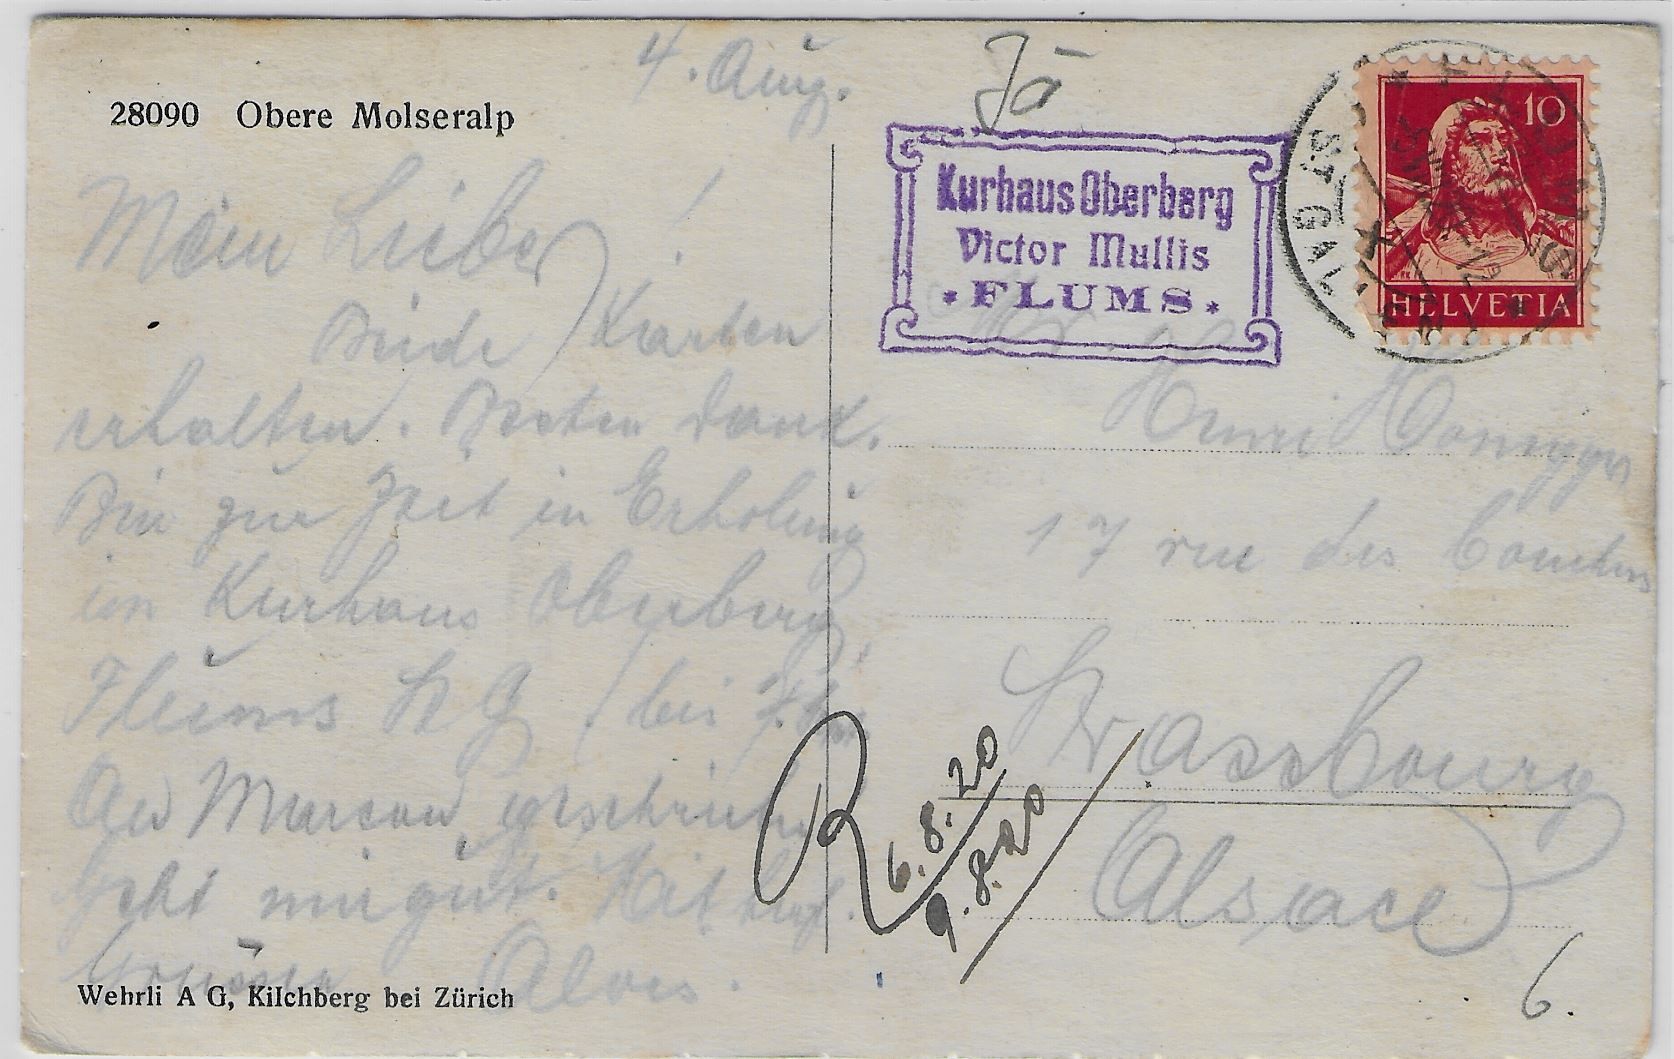 4. Aug.
Jä
28090 Obere Molseralp
Mein Lieber!
Beide Karten
erhalten. Besten Dank.
Bin zur Zeit in Erholung
im Kurhaus Oberberg,
Flums St G (bis
An geschrieben
Geht mir gut. Mit
Grüssen Alois.
Wehrli A G, Kilchberg bei Zürich
Kurhaus Oberberg
Victor Mullis
* FLUMS. *
10
HELVETIA
ST. G
Henri
17 rue des
Strassbourg
Alsace
R 6.8.20
9.8.20
6.